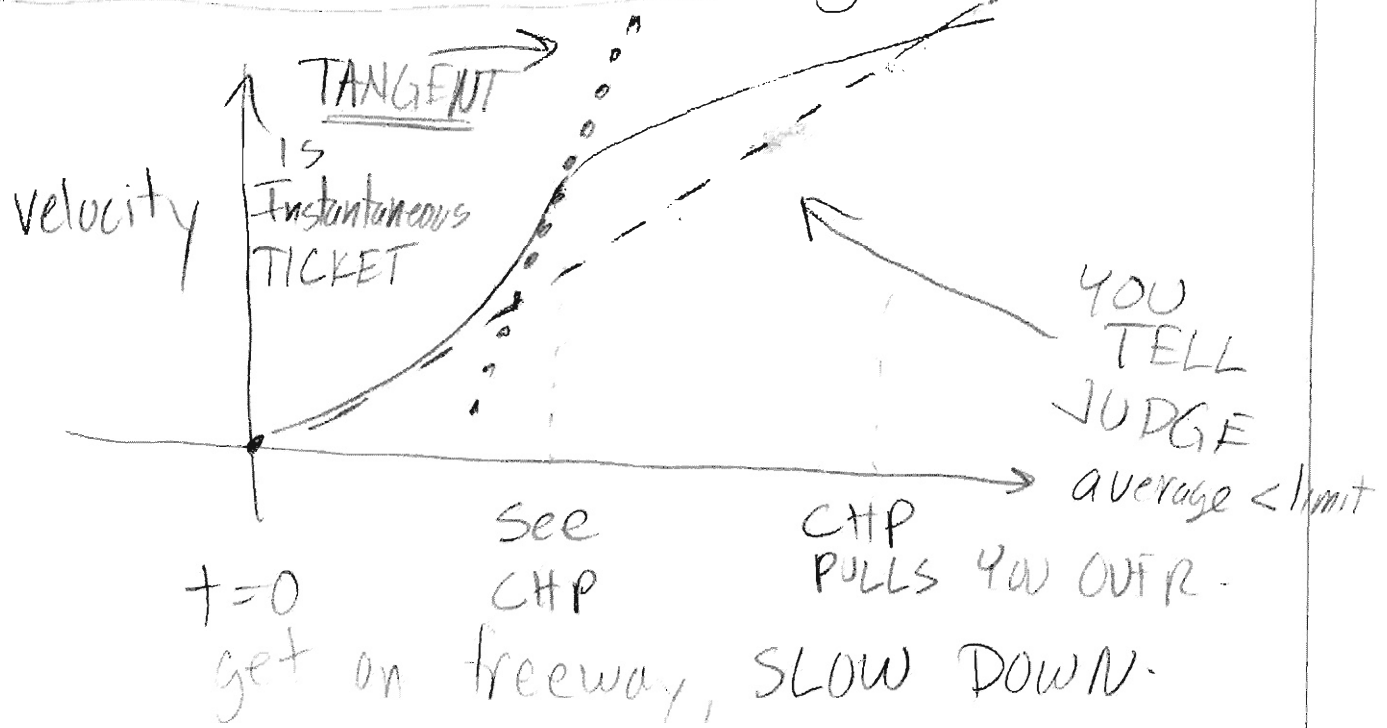 TANGENT
is
Instantaneous
TICKET
velocity
YOU
TELL
JUDGE
average < limit
See
CHP
CHP
PULLS YOU OVER.
t=0
get on freeway, SLOW DOWN.